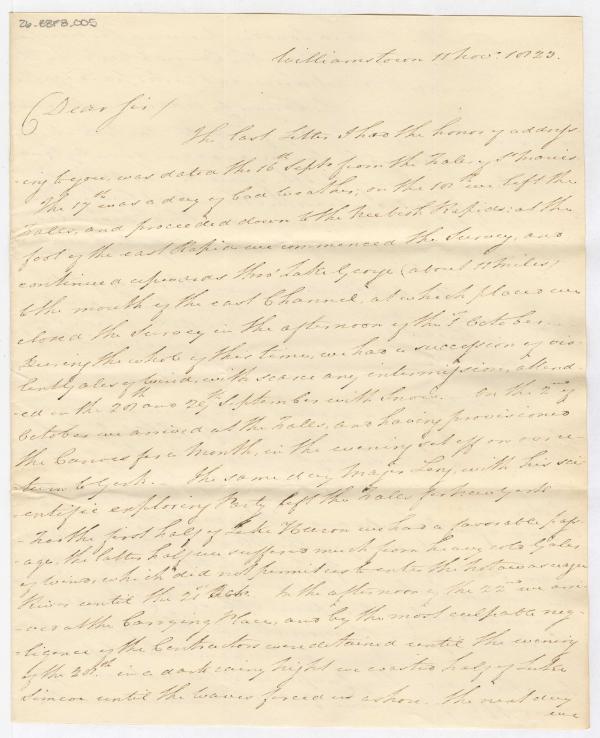 26-BBFB.005
Williamstown 11 Nov. 1823.
Dear Sir/
The last Letter I had the honor of address
-ing to you, was dated the 16th Septr from the Falls of St Maries
The 17th was a day of bad weather; on the 18th we left the
Falls, and proceeded down to the Neebish Rapids: at the
foot of the east Rapid we commenced the Survey, and
continued upwards thro' Lake George (about 11 miles)
to the mouth of the east Channel, at which place we
closed the Survey in the afternoon of the 1st October.
During the whole of this time, we had a succession of vio
-lent Gales of Wind, with scarce any intermission, attend
-ed on the 28th and 29th September with Snow. On the 2nd of
October we arrived at the Falls, and having provisioned
the Canoes for a Month, in the evening set off on our re
-turn to York. The same day Major Long, with his sci
-entific exploring Party left the Falls for New York
the first half of Lake Huron we had a favorable pas
-age, the latter half we suffered much from heavy cold Gales
of Wind, which did not permit us to enter the Nottawasague
River until the 21st Octr. In the afternoon of the 22nd we arri
-ved at the Carrying Place, and by the most culpable neg
-ligence of the Contractors were detained until the evening
of the 28th in a dark rainy night we coasted half of Lake
Simcoe until the waves forced us ashore. The next day
we